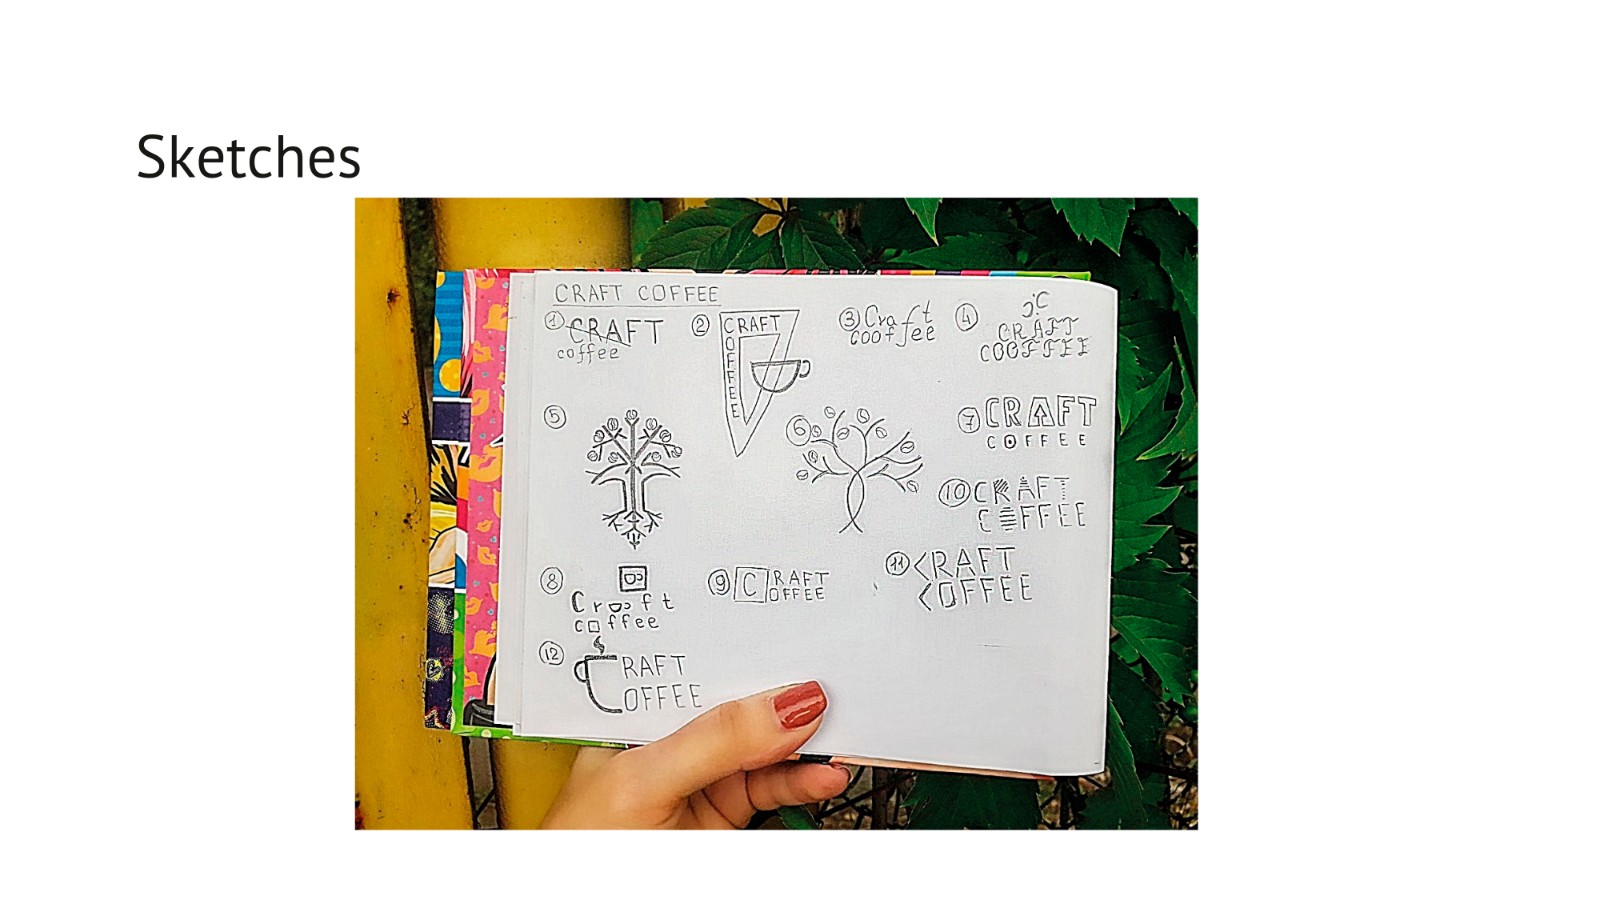 Sketches
CRAFT COFFEE
1 CRAFT
coffee
2 CRAFT
COFFEE
3 Craft
cooffee
4 CRAFT
COOFFEE
5
6
7 CRAFT
COFFEE
8
Craft
coffee
9 CRAFT
OFFEE
10 CRAFT
COFFEE
11 CRAFT
COFFEE
12 CRAFT
OFFEE